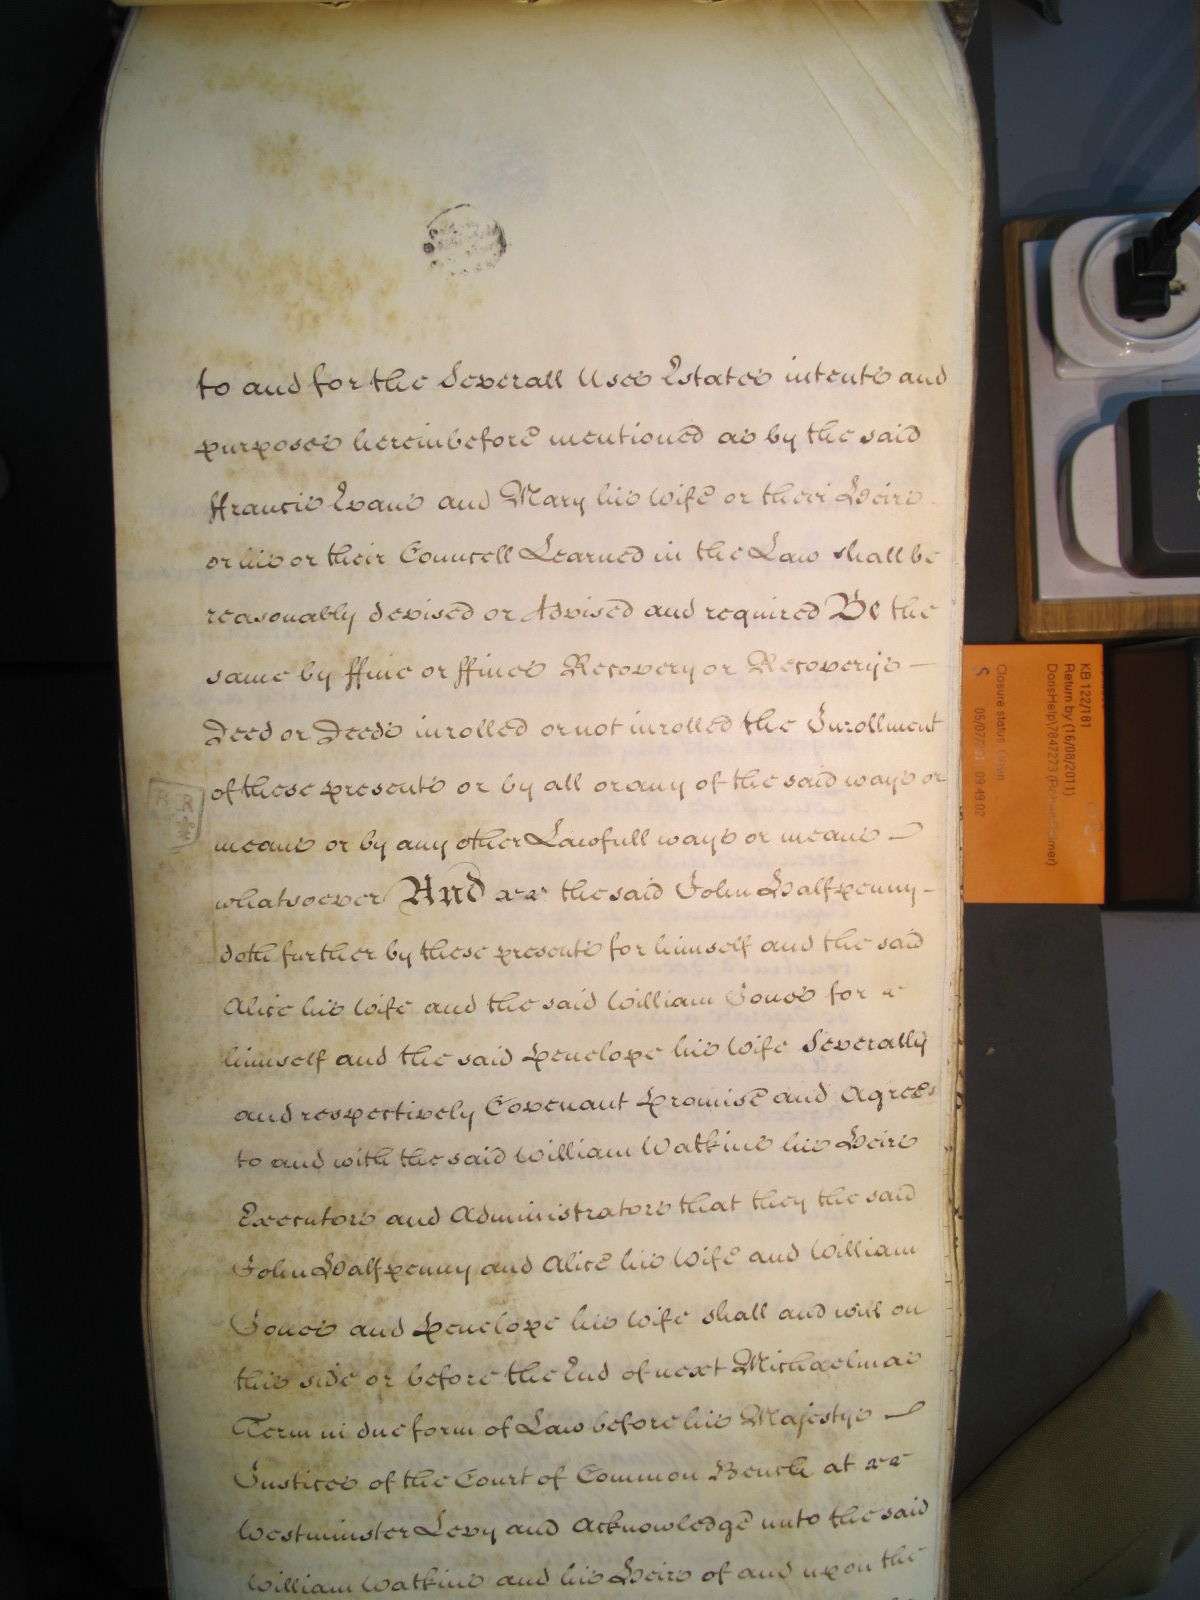 to and for the Severall Uses Estates intents and
purposes hereinbefore mentioned as by the said
ffrancis Evans and Mary his Wife or their Heirs
or his or their Councell Learned in the Law shall be
reasonably devised or Advised and required Be the
same by ffine or ffines Recovery or Recoverys
Deed or Deeds inrolled or not inrolled the Inrollment
of these presents or by all or any of the said ways or
means or by any other Lawfull ways or means
whatsoever And the said John Halfpenny
doth further by these presents for himself and the said
Alice his Wife and the said William Jones for
himself and the said Penelope his Wife Severally
and respectively Covenant Promise and Agree
to and with the said William Watkins his Heirs
Executors and Administrators that they the said
John Halfpenny and Alice his Wife and William
Jones and Penelope his Wife shall and will on
this side or before the End of next Michaelmas
Term in due form of Law before his Majestys
Justices of the Court of Common Bench at
Westminster Levy and Acknowledge unto the said
William Watkins and his Heirs of and upon the
KB 122/181
Return by (16/08/2011)
Closure status
S 09:49:02